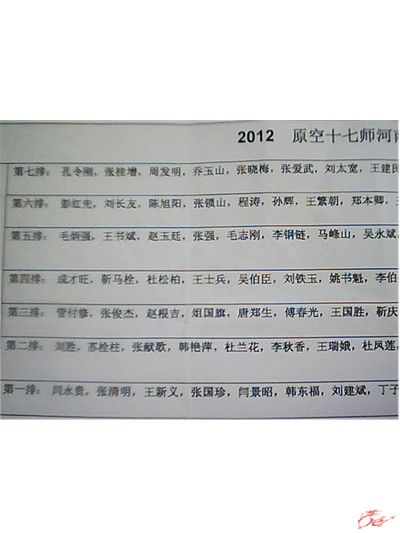 2012 原空十七师河南
第七排：孔令刚，张桂增，周发明，乔玉山，张晓梅，张爱武，刘太宽，王建民
第六排：彭红先，刘长友，陈旭阳，张锁山，程涛，孙辉，王繁朝，郑本卿，王
第五排：毛炳强，王书斌，赵玉廷，张强，毛志刚，李钢链，马峰山，吴永斌
第四排：成才旺，靳马栓，杜松柏，王士兵，吴伯臣，刘铁玉，姚书魁，李伯
第三排：管付修，张俊杰，赵根吉，俎国旗，唐郑生，傅春光，王国胜，靳庆
第二排：刘胜，苏栓柱，张献歌，韩艳萍，杜兰花，李秋香，王瑞娥，杜凤莲
第一排：闫永贵，张清明，王新义，张国珍，闫景昭，韩东福，刘建斌，丁子